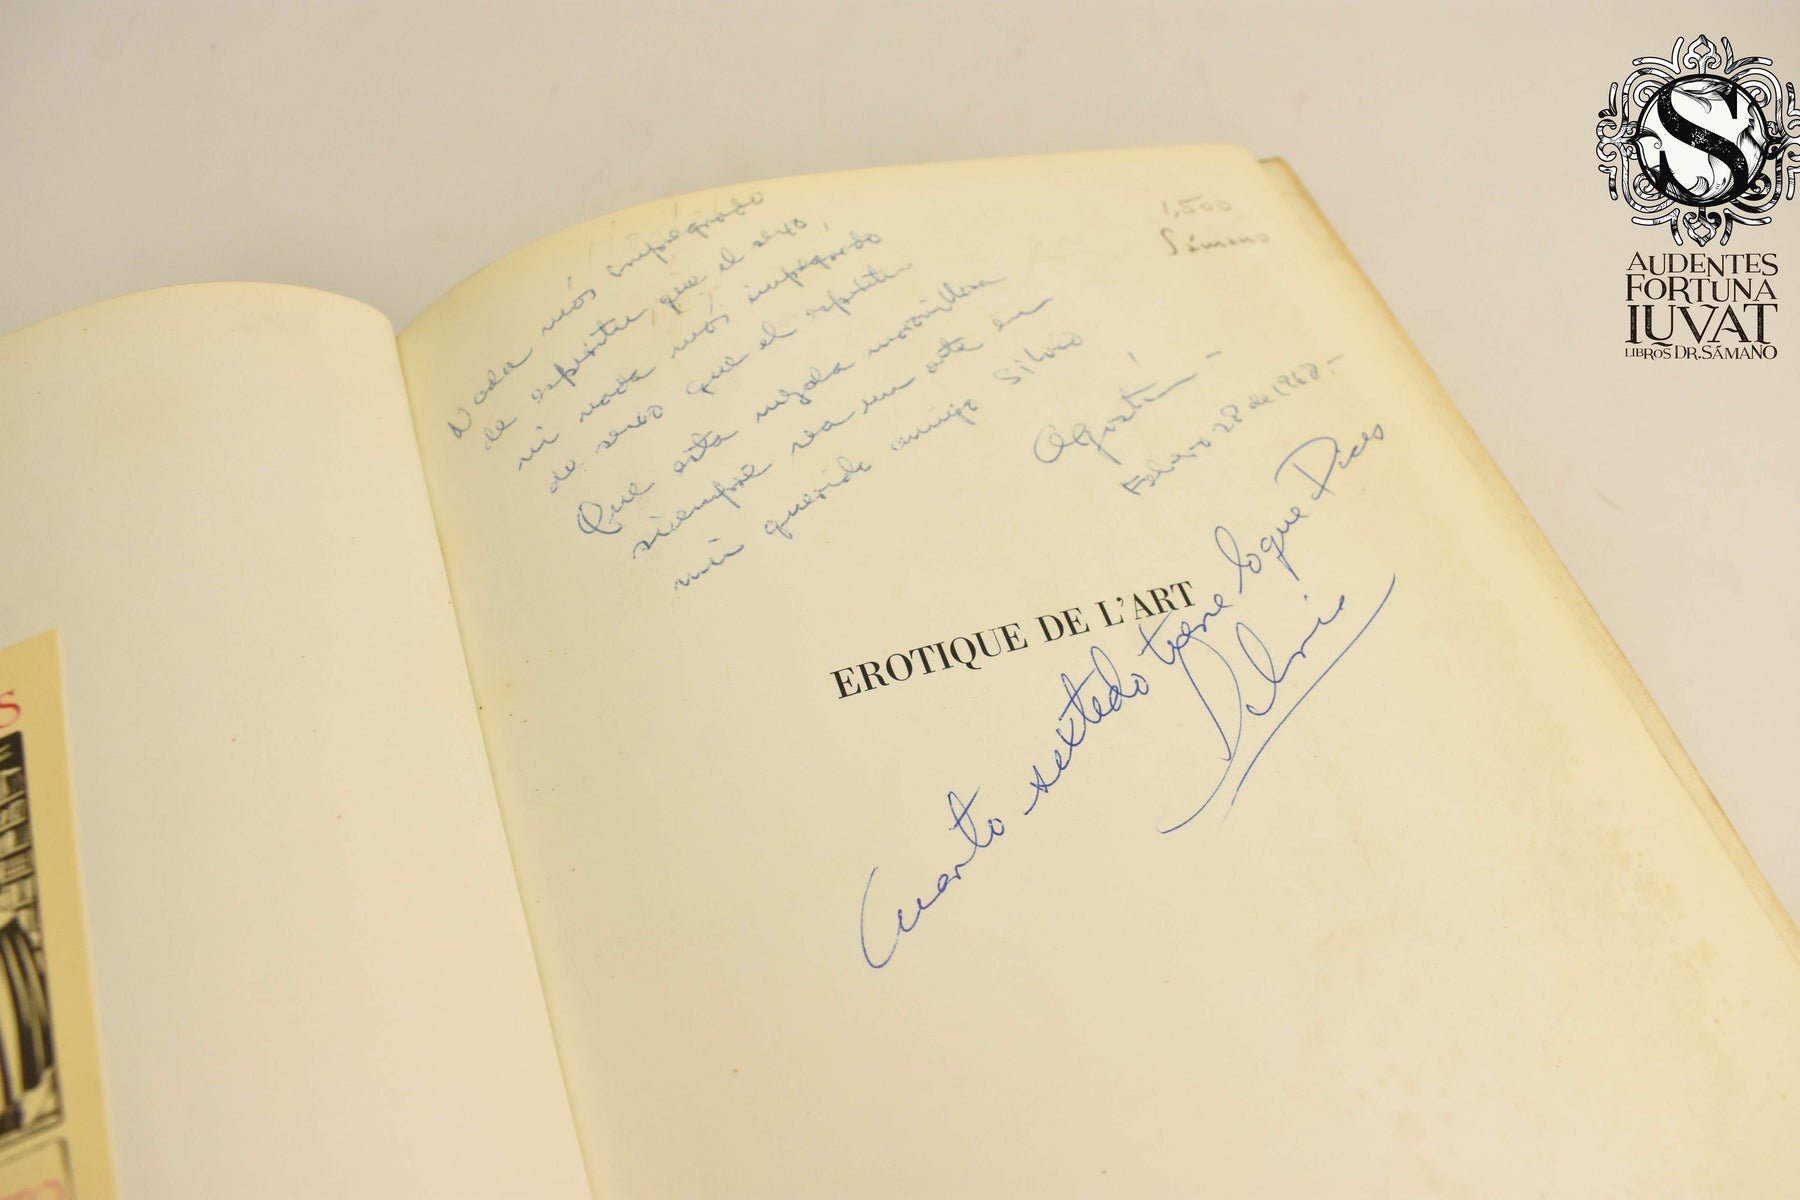 Nada más impregnado
de espíritu, que el sexo,
ni nada más impregnado
de sexo que el espíritu
Que esta mezcla maravillosa
siempre sea un arte en
mi querido amigo Silvio
Agustí
Febrero 28 de 1968.-
1,500
Sámano
EROTIQUE DE L'ART
Cuanto sextedo tiene lo que Dices
Silvio
S
S
AUDENTES
FORTUNA
IUVAT
LIBROS DR. SÁMANO